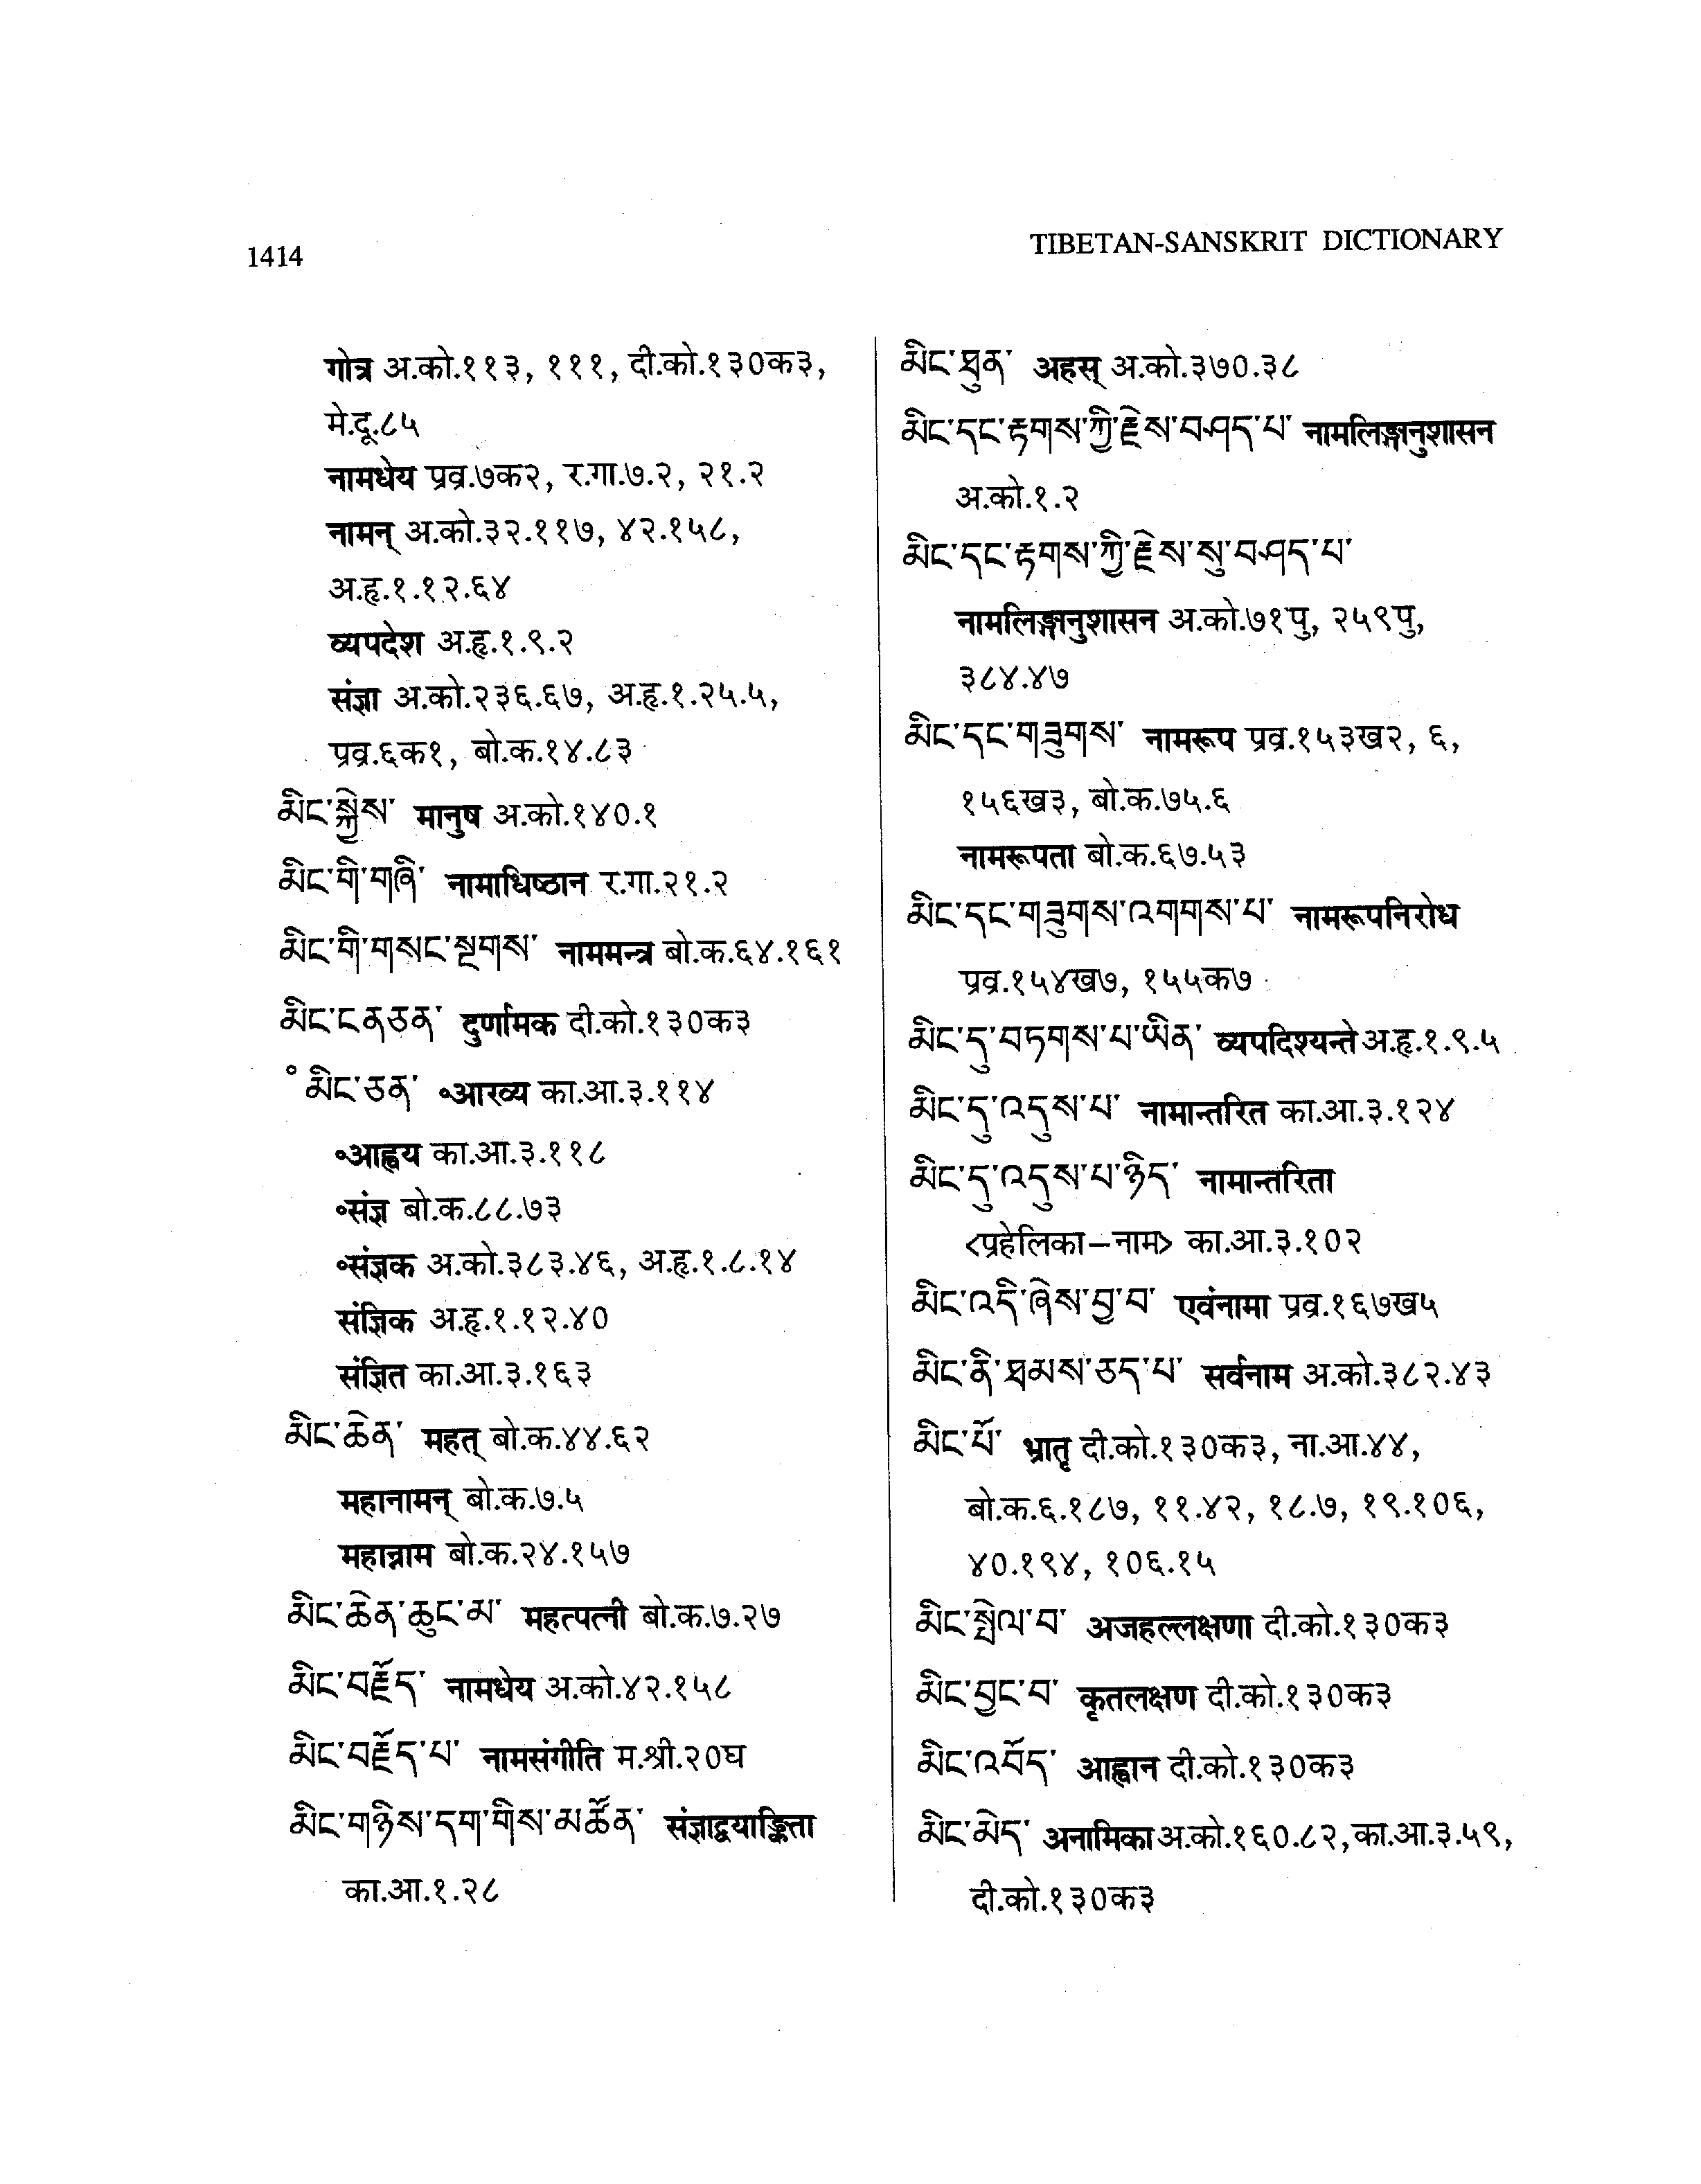 1414
TIBETAN-SANSKRIT DICTIONARY
गोत्र अ.को.११३, १११, दी.को.१३०क३,
मे.दू.८५
नामधेय प्रव्र.७क२, र.गा.७.२, २१.२
नामन् अ.को.३२.११७, ४२.१५८,
अ.हृ.१.१२.६४
व्यपदेश अ.हृ.१.९.२
संज्ञा अ.को.२३६.६७, अ.हृ.१.२५.५,
प्रव्र.६क१, बो.क.१४.८३
མིང་སྐྱེས་ मानुष अ.को.१४०.१
མིང་གི་གཞི་ नामाधिष्ठान र.गा.२१.२
མིང་གི་གསང་སྔགས་ नाममन्त्र बो.क.६४.१६१
མིང་ངན་ཅན་ दुर्णामक दी.को.१३०क३
°མིང་ཅན་ ॰आख्य का.आ.३.११४
॰आह्वय का.आ.३.११८
॰संज्ञ बो.क.८८.७३
॰संज्ञक अ.को.३८३.४६, अ.हृ.१.८.१४
संज्ञिक अ.हृ.१.१२.४०
संज्ञित का.आ.३.१६३
མིང་ཆེན་ महत् बो.क.४४.६२
महानामन् बो.क.७.५
महान्नाम बो.क.२४.१५७
མིང་ཆེན་ཆུང་མ་ महत्पत्नी बो.क.७.२७
མིང་བརྗོད་ नामधेय अ.को.४२.१५८
མིང་བརྗོད་པ་ नामसंगीति म.श्री.२०घ
མིང་གཉིས་དག་གིས་མཚོན་ संज्ञाद्वयाङ्किता
का.आ.१.२८
མིང་ཐུན་ अहस् अ.को.३७०.३८
མིང་དང་རྟགས་ཀྱི་རྗེས་བཤད་པ་ नामलिङ्गानुशासन
अ.को.१.२
མིང་དང་རྟགས་ཀྱི་རྗེས་སུ་བཤད་པ་
नामलिङ्गानुशासन अ.को.७१पु, २५९पु,
३८४.४७
མིང་དང་གཟུགས་ नामरूप प्रव्र.१५३ख२, ६,
१५६ख३, बो.क.७५.६
नामरूपता बो.क.६७.५३
མིང་དང་གཟུགས་འགགས་པ་ नामरूपनिरोध
प्रव्र.१५४ख७, १५५क७
མིང་དུ་བཏགས་པ་ཡིན་ व्यपदिश्यन्ते अ.हृ.१.९.५
མིང་དུ་འདུས་པ་ नामान्तरित का.आ.३.१२४
མིང་དུ་འདུས་པ་ཉིད་ नामान्तरिता
<प्रहेलिका–नाम> का.आ.३.१०२
མིང་འདི་ཞེས་བྱ་བ་ एवंनामा प्रव्र.१६७ख५
མིང་ནི་ཐམས་ཅད་པ་ सर्वनाम अ.को.३८२.४३
མིང་པོ་ भ्रातृ दी.को.१३०क३, ना.आ.४४,
बो.क.६.१८७, ११.४२, १८.७, १९.१०६,
४०.१९४, १०६.१५
མིང་སྤེལ་བ་ अजहल्लक्षणा दी.को.१३०क३
མིང་བྱང་བ་ कृतलक्षण दी.को.१३०क३
མིང་འབོད་ आह्वान दी.को.१३०क३
མིང་མེད་ अनामिका अ.को.१६०.८२, का.आ.३.५९,
दी.को.१३०क३